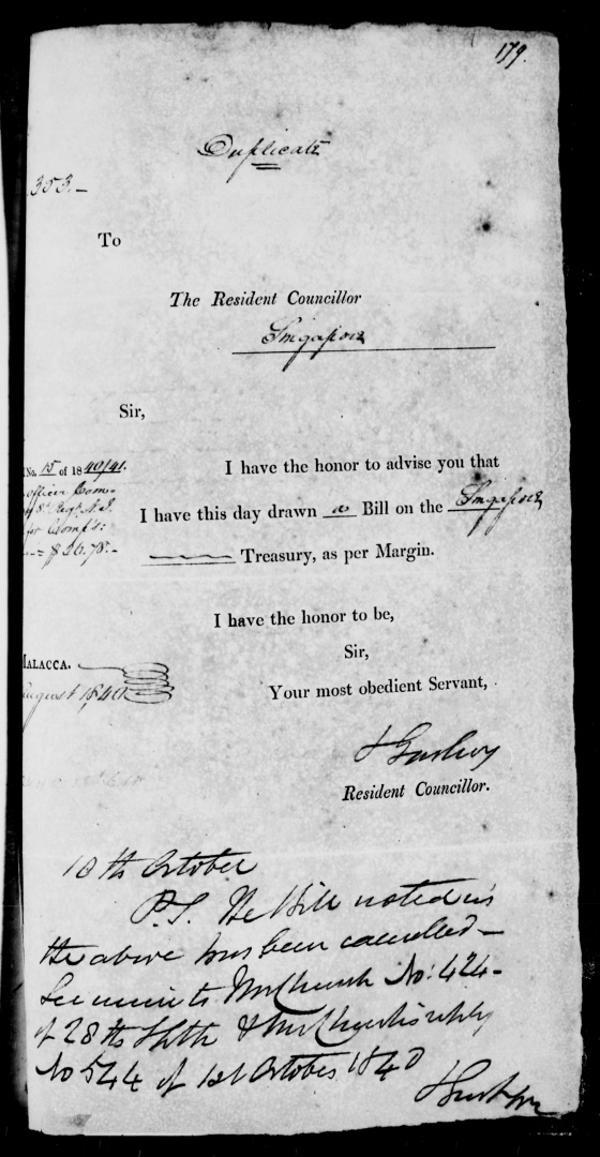 179.
Duplicate
353.-
To
The Resident Councillor
Singapore
Sir,
No. 15 of 1840/41.
officer Com-
8th Regt. N.I.
for Comp's:
$ 26.78.-
I have the honor to advise you that
I have this day drawn a Bill on the Singapore
Treasury, as per Margin.
I have the honor to be,
Sir,
MALACCA.
August 1840
Your most obedient Servant,
Resident Councillor.
10th October
P.S. The Bill noted in
the above has been cancelled-
See mine to Mr Church No: 424-
of 28th & Mr Church's reply
No 544 of 1st October 1840